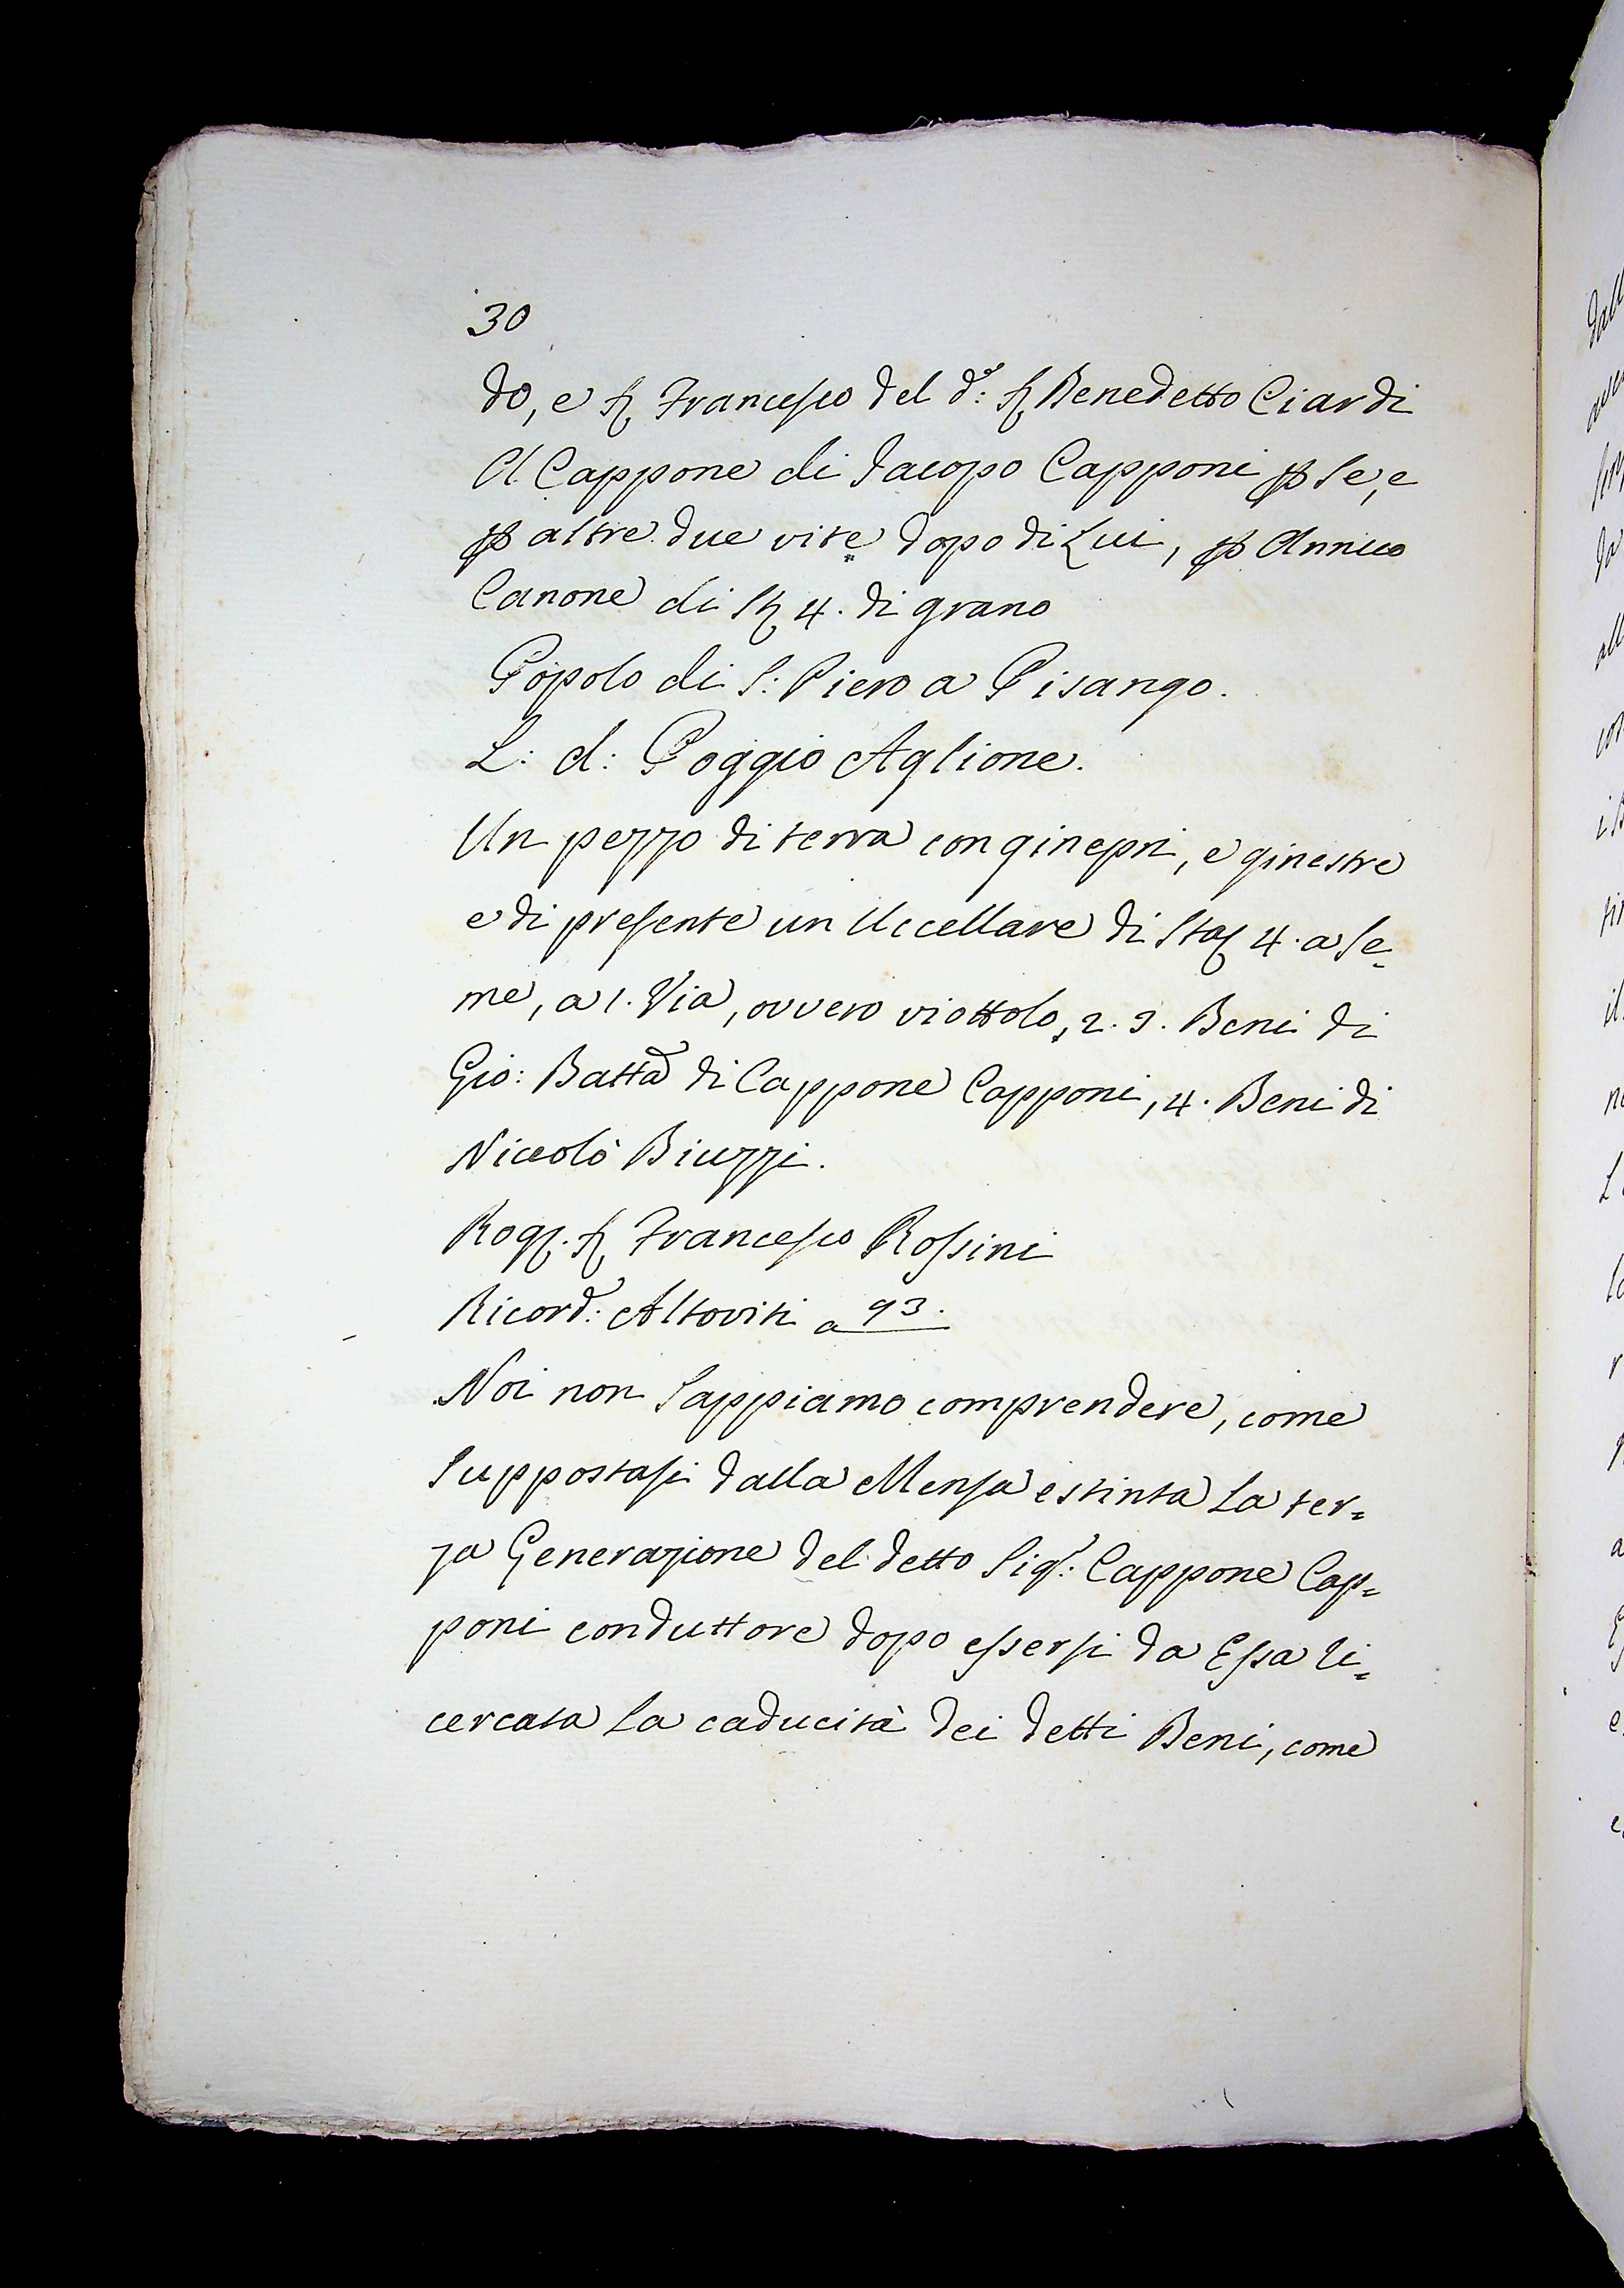 30
do, e S. Francesco del d.o: S. Benedetto Ciardi
A Cappone di Iacopo Capponi p Se, e
p altre due vite dopo di Lui, p Annuo
Canone di St. 4. di grano
Popolo di S: Piero a Pisango.
L: d: Poggio Aglione.
Un pezzo di terra con ginepri, e ginestre
e di presente un Uccellare di Sta. 4. a Se=
me, a 1. Via, ovvero viottolo, 2. 3. Beni di
Gio: Batta di Cappone Capponi, 4. Beni di
Niccolò Biuzzi.
Rog. S. Francesco Rossini
Ricord: Altoviti a 93.
Noi non Sappiamo comprendere, come
Suppostasi dalla Mensa estinta La ter=
za Generazione del detto Sig.r: Cappone Cap=
poni conduttore dopo essersi da Essa ri=
cercata La caducità dei detti Beni, come